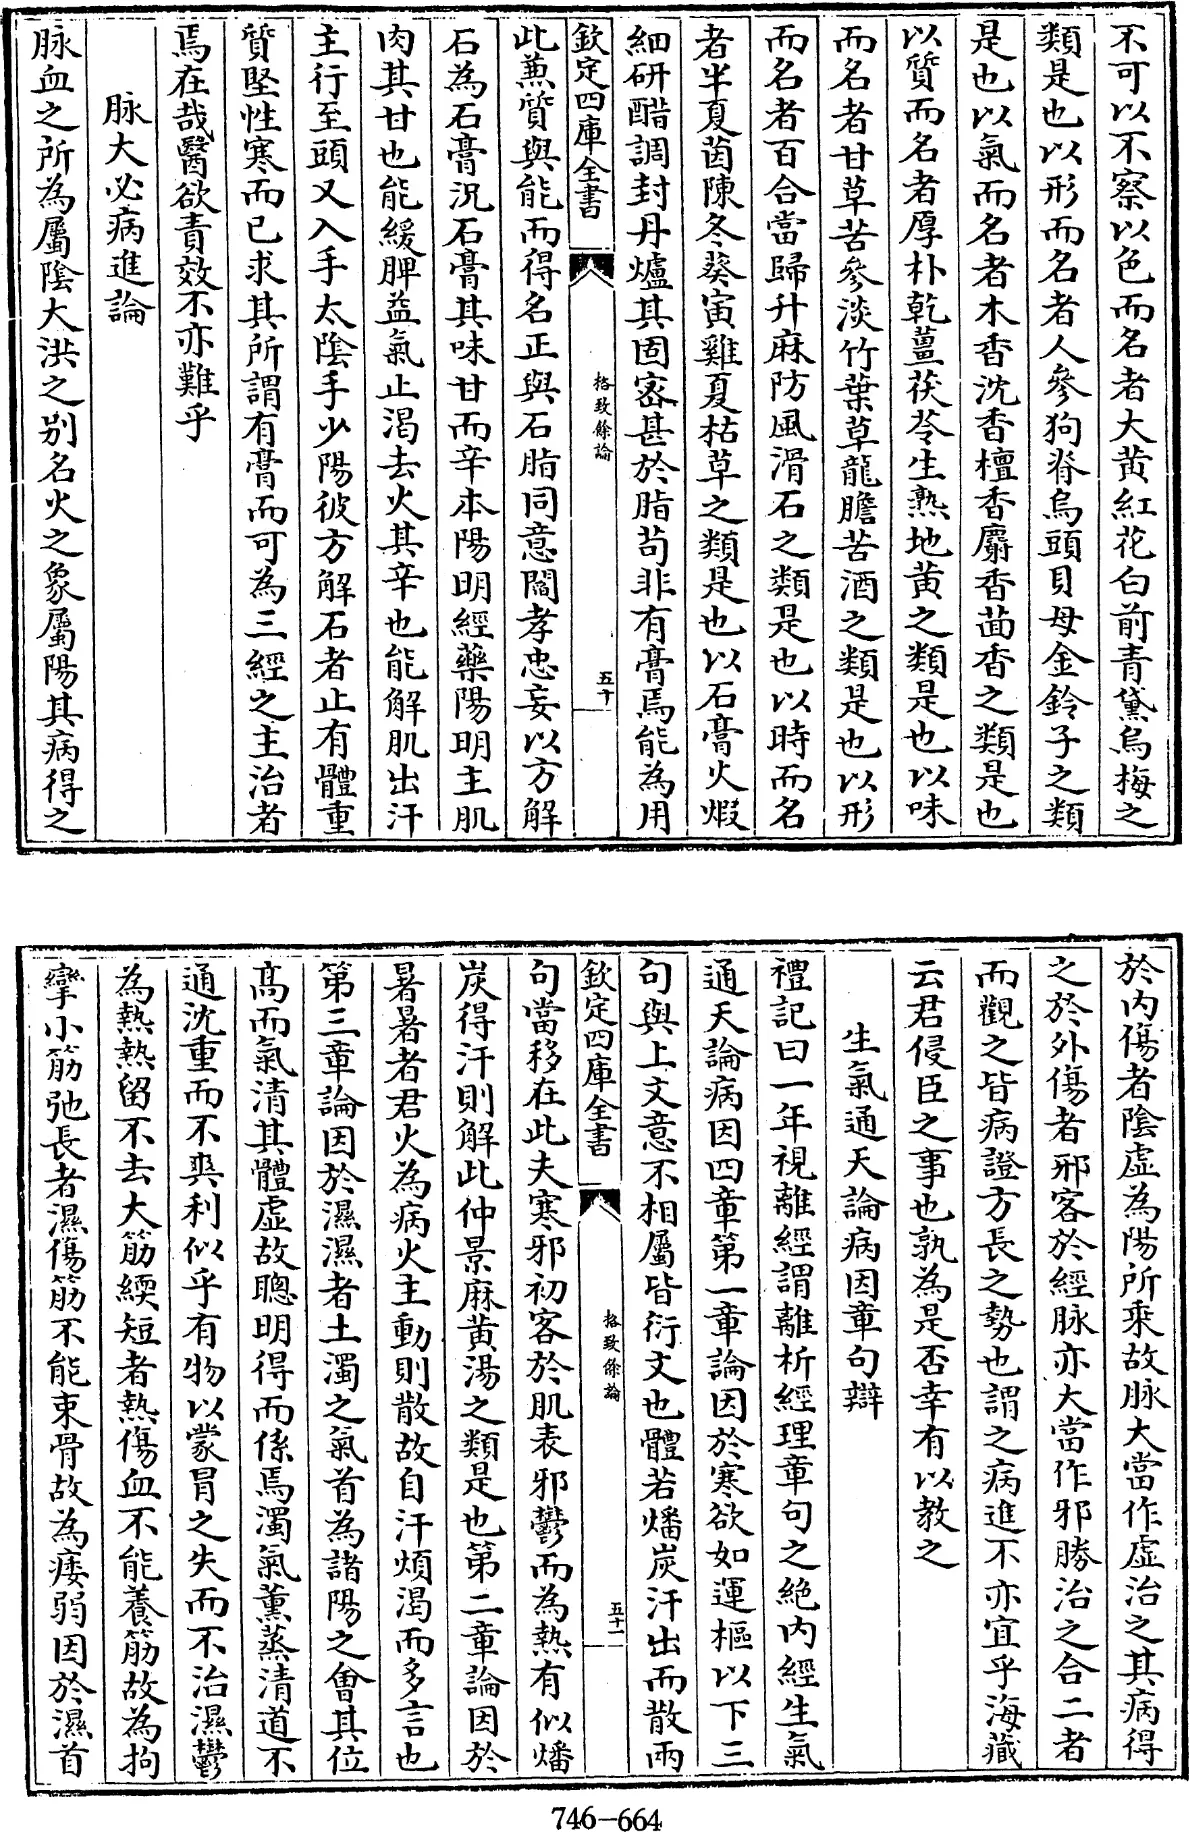 不可以不察以色而名者大黄紅花白前青黛烏梅之
類是也以形而名者人參狗脊烏頭貝母金鈴子之類
是也以氣而名者木香沈香檀香麝香茴香之類是也
以質而名者厚朴乾薑茯苓生熟地黄之類是也以味
而名者甘草苦參淡竹葉草龍膽苦酒之類是也以形
而名者百合當歸升麻防風滑石之類是也以時而名
者半夏茵陳冬葵寅雞夏枯草之類是也以石膏火煆
細研醋調封丹爐其固宻甚於脂苟非有膏焉能為用
欽定四庫全書
格致餘論
五十
此兼質與能而得名正與石脂同意閻孝忠妄以方解
石為石膏況石膏其味甘而辛本陽明經藥陽明主肌
肉其甘也能緩脾益氣止渴去火其辛也能解肌出汗
主行至頭又入手太陰手少陽彼方解石者止有體重
質堅性寒而已求其所謂有膏而可為三經之主治者
焉在哉醫欲責效不亦難乎
脉大必病進論
脉血之所為屬陰大洪之别名火之象屬陽其病得之
於内傷者陰虛為陽所乘故脉大當作虛治之其病得
之於外傷者邪客於經脉亦大當作邪勝治之合二者
而觀之皆病證方長之勢也謂之病進不亦宜乎海藏
云君侵臣之事也孰為是否幸有以教之
生氣通天論病因章句辯
禮記曰一年視離經謂離析經理章句之絶内經生氣
通天論病因四章第一章論因於寒欲如運樞以下三
句與上文意不相屬皆衍文也體若燔炭汗出而散兩
欽定四庫全書
格致餘論
五十一
句當移在此夫寒邪初客於肌表邪鬱而為熱有似燔
炭得汗則解此仲景麻黄湯之類是也第二章論因於
暑暑者君火為病火主動則散故自汗煩渴而多言也
第三章論因於濕濕者土濁之氣首為諸陽之會其位
髙而氣清其體虛故聰明得而係焉濁氣薰蒸清道不
通沈重而不爽利似乎有物以蒙冒之失而不治濕鬱
為熱熱留不去大筋緛短者熱傷血不能養筋故為拘
攣小筋弛長者濕傷筋不能束骨故為痿弱因於濕首
746-664